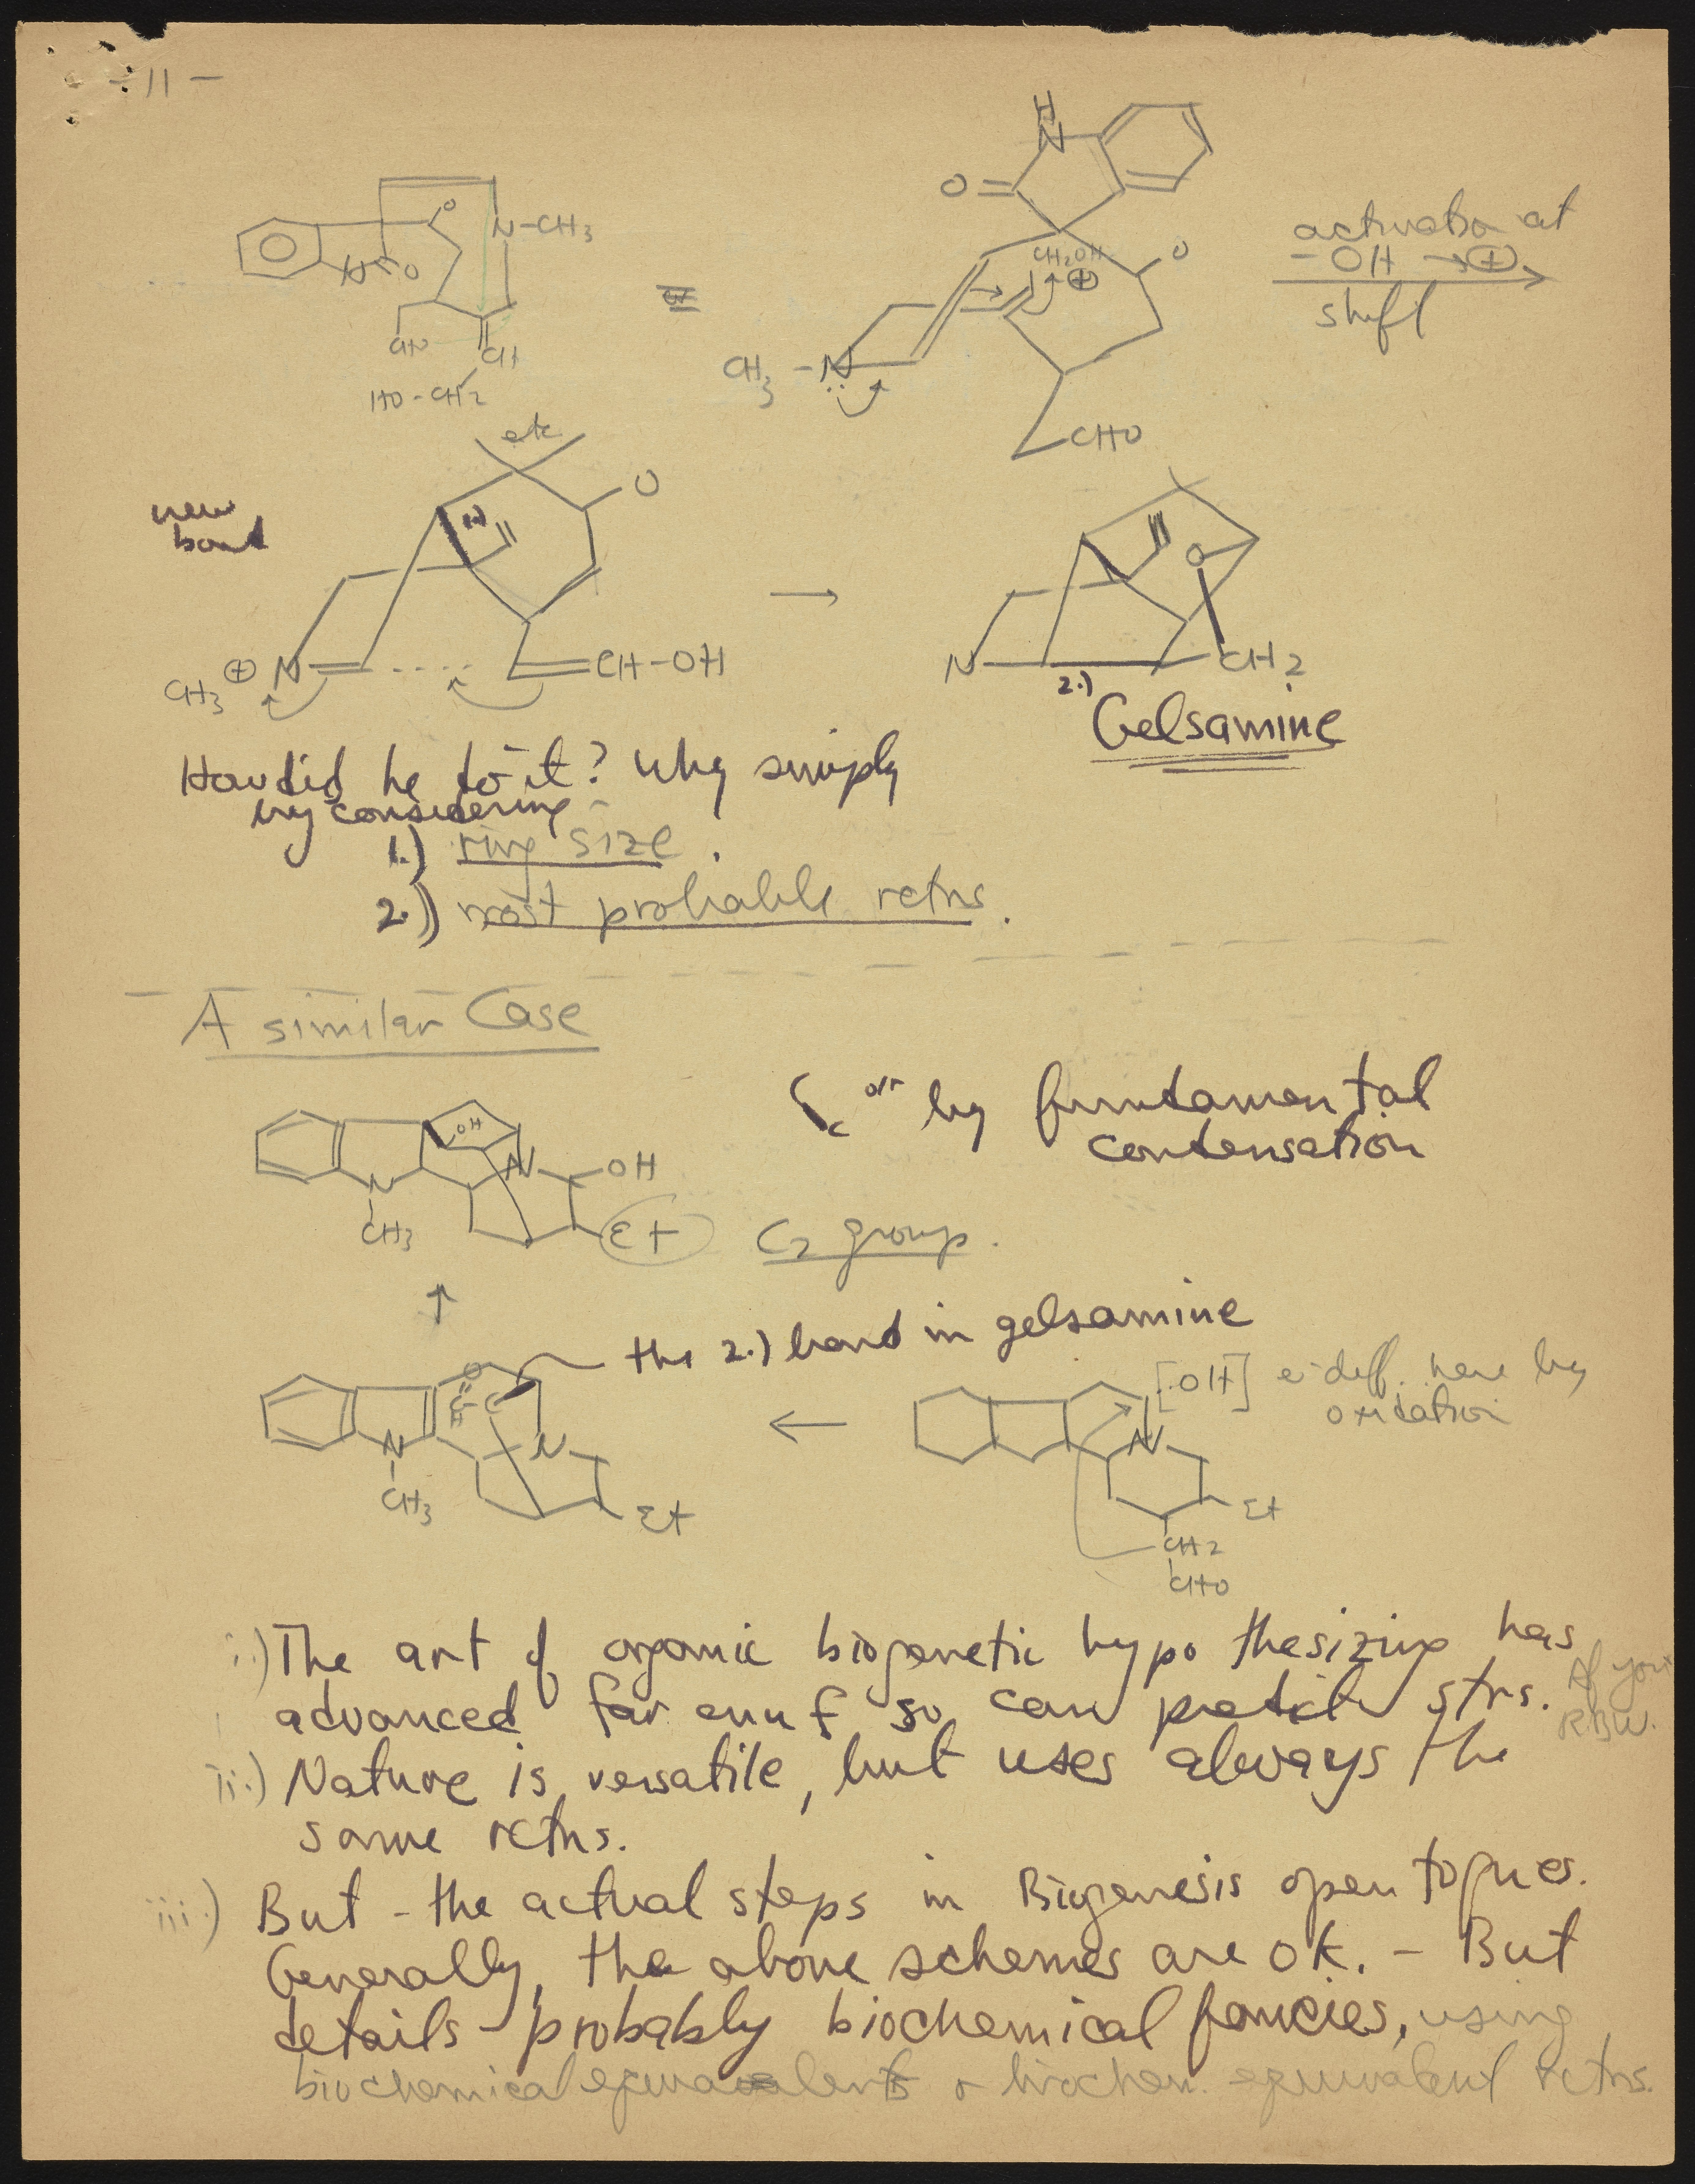 - 11 -
H
N
O
O
N-CH3
N
O
CH2OH
⊕
O
activation at
-OH → ⊕
shift
≡
CHO
CH
HO-CH2
CH3-N:
CHO
etc
O
new
bond
1.)
O
CH3 ⊕ N
CH-OH
→
N
2.)
CH2
Gelsamine
How did he do it? Why simply
by considering -
1.) ring size.
2.) most probable rctns.
A similar Case
or by fundamental
condensation
OH
N
OH
N
CH3
Et
C2 group.
↑
the 2.) bond in gelsamine
O
C
H
C
N
N
CH3
Et
←
[·OH] e- deff. here by
oxidation
N
Et
CH2
CHO
i.) The art of organic biogenetic hypothesizing has
advanced far enuf so can predict strs. If you're
RBW.
ii.) Nature is versatile, but uses always the
same rctns.
iii.) But - the actual steps in Biogenesis open to ques.
Generally, the above schemes are OK. - But
details - probably biochemical fancies, using
biochemical equivalents & biochem. equivalent rctns.